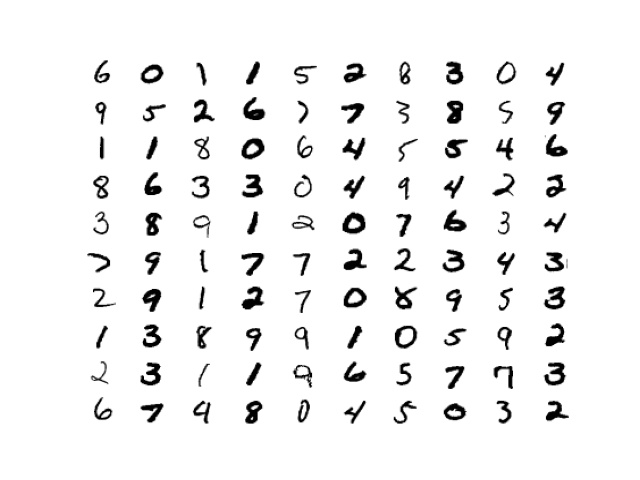 6 0 1 1 5 2 8 3 0 4
9 5 2 6 7 7 3 8 5 9
1 1 8 0 6 4 5 5 4 6
8 6 3 3 0 4 9 4 2 2
3 8 9 1 2 0 7 6 3 4
7 9 1 7 7 2 2 3 4 3
2 9 1 2 7 0 8 9 5 3
1 3 8 9 9 1 0 5 9 2
2 3 1 1 9 6 5 7 7 3
6 7 4 8 0 4 5 0 3 2